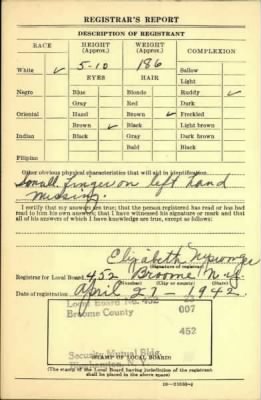 REGISTRAR'S REPORT
DESCRIPTION OF REGISTRANT
RACE
HEIGHT
(Approx.)
WEIGHT
(Approx.)
COMPLEXION
White ✓
5-10
186
Sallow
EYES
HAIR
Light
Negro
Blue
Blonde
Ruddy ✓
Gray
Red
Dark
Oriental
Hazel
Brown ✓
Freckled
Brown ✓
Black
Light brown
Indian
Black
Gray
Dark brown
Bald
Black
Filipino
Other obvious physical characteristics that will aid in identification
Small finger on left hand
missing.
I certify that my answers are true; that the person registered has read or has
had read to him his own answers; that I have witnessed his signature or mark and that
all of his answers of which I have knowledge are true, except as follows:
Elizabeth
(Signature of registrar)
Registrar for Local Board 452 Broome N.Y.
(Number) (City or county) (State)
Date of registration April 27 - 1942
Local Board No. 452 22
Broome County 007
452
Security Mutual Bldg.
Binghamton, N. Y.
(STAMP OF LOCAL BOARD)
(The stamp of the Local Board having jurisdiction of the registrant
shall be placed in the above space)